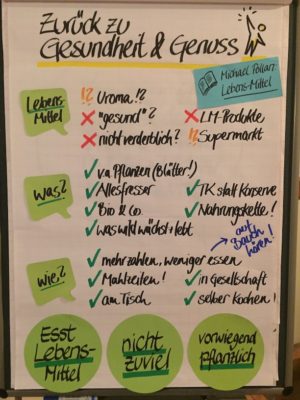 Zurück zu
Gesundheit & Genuss
Michael Pollan:
Lebens-Mittel
Lebens
Mittel
!? Uroma!?
"gesund"?
LM-Produkte
nicht verderblich?
!? Supermarkt
Was?
va. Pflanzen (Blätter!)
Allesfresser
TK statt Konserve
Bio & Co.
Nahrungskette!
was wild wächst + lebt
→ auf
Bauch
hören!
Wie?
mehr zahlen, weniger essen
Mahlzeiten!
in Gesellschaft
am Tisch
selber kochen!
Esst
Lebens-
Mittel
nicht
zuviel
vorwiegend
pflanzlich